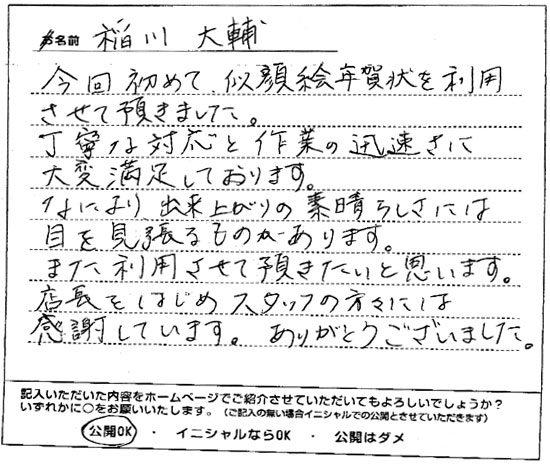 お名前 稲川 大輔
今回初めて、似顔絵年賀状を利用
させて預きました。
丁寧な対応と作業の迅速さに
大変満足しております。
なにより、出来上がりの素晴らしさには
目を見張るものがあります。
また利用させて預きたいと思います。
店長をはじめスタッフの方々には
感謝しています。ありがとうございました。
記入いただいた内容をホームページでご紹介させていただいてもよろしいでしょうか？
いずれかに○をお願いいたします。（ご記入の無い場合イニシャルでの公開とさせていただきます）
公開OK ・ イニシャルならOK ・ 公開はダメ